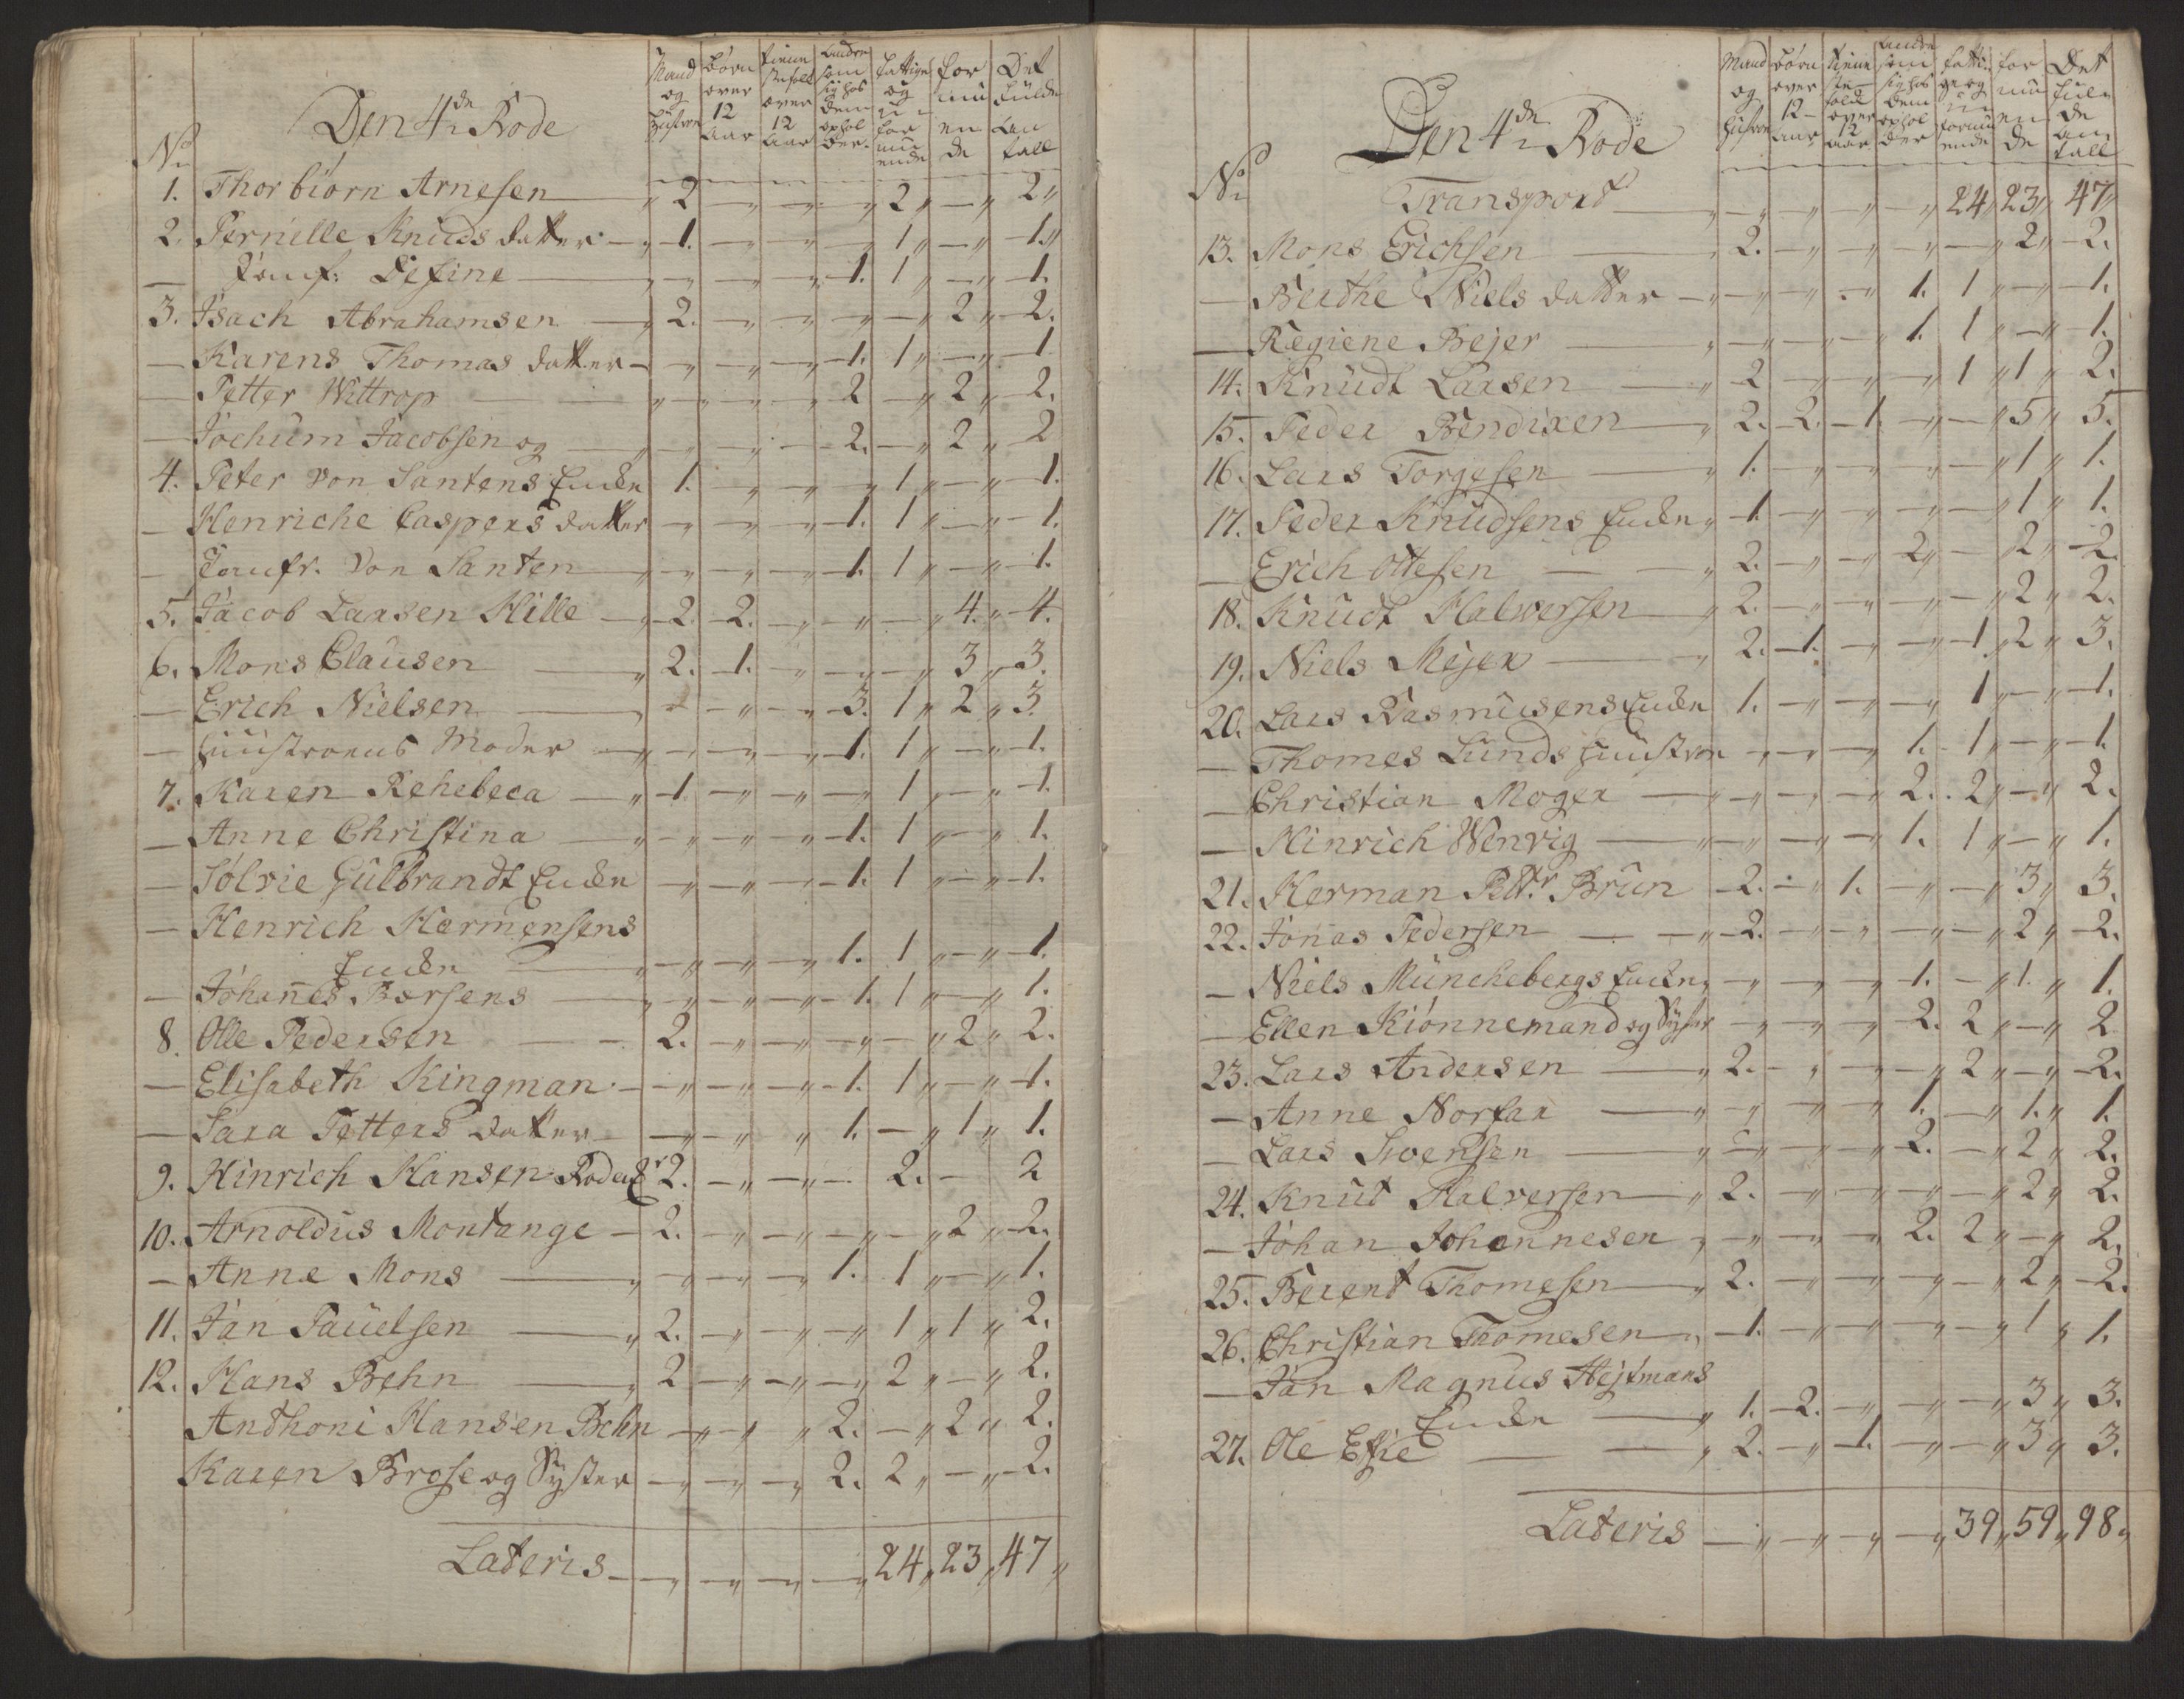 Den 4de Rode
No
Mand og Hustroe
Børn over 12 Aar
tienne stefolk over 12 Aar
Andre som sig hos dem ophol der.
fattige og u for mu ende
for mu en de
Det fulde An tall
1. Thorbiørn Arnesen — 2 — — — 2 — 2
2. Pernille Knuds datter — 1. — — — 1 — 1.
— Jomf: Define — — — — 1. 1 — 1.
3. Isach Abrahamsen — 2. — — — — 2 2.
— Karens Thomas datter — — — — 1. 1 — 1
— Petter Wittrop — — — — 2 — 2 2.
— Jochum Jacobsen og — — — — 2. — 2 2
4. Peter von Santens Encke 1. — — — 1 — 1.
— Henriche Caspers datter — — — 1. 1 — 1.
— Jomfr. von Santen — — — — 1. 1 — 1.
5. Jacob Larsen Hille — 2. 2. — — — 4. 4.
6. Mons Clausen — 2. 1. — — — 3 3.
— Erich Nielsen — — — — 3. 1 2 3.
— Huustroens Moder — — — — 1. 1 — 1.
7. Karen Rehebeca — 1 — — — 1 — 1.
— Anne Christina — — — — 1. 1 — 1.
— Sølvie Gulbrandt Encke — — — 1. 1 — 1.
— Henrich Hermensens
Encke — — — — 1. 1 — 1.
— Johan̄es Børsens — — — — 1. 1 — 1.
8. Olle Pedersen — 2. — — — — 2 2.
— Elisabeth Kingman — — — — 1. 1 — 1.
— Sara Petters datter — — — 1. — 1 1.
9. Hinrich Hansen Rodem:r 2. — — — 2. — 2
10. Arnoldus Montange — 2. — — — — 2 2.
— Anne Mons — — — — 1. 1 — 1.
11. Jan Pauelsen — 2. — — — 1 1 2.
12. Hans Behn — 2 — — — 2 — 2.
Anthoni Hansen Behn — — 2. — 2 2.
Karen Brose og Syster — — — 2. 2 — 2.
Lateris — — — — 24 23 47
Den 4de Rode
No
Mand og Hustroe
Børn over 12 Aar
tienne ste folk over 12 Aar
Andre som sig hos dem ophol der
fatti ge og u formu ende
for mu en de
Det fule de An tall
Transport — — — — — 24 23 47
13. Mons Erichsen — 2. — — — — 2 2.
— Berthe Niels datter — — — — 1. 1 — 1.
— Regiene Bejer — — — — 1. 1 — 1.
14. Knudt Larsen — 2 — — — 1 1 2.
15. Peder Bendixen — 2. 2. 1. — — 5 5.
16. Lars Torgesen — 1. — — — — 1 1.
17. Peder Knudsens Encke 1. — — — — 1 1.
— Erich Ottesen — 2. — — 2 — 2 2.
18. Knudt Halversen — 2. — — — — 2 2.
19. Niels Mejer — 2. 1. — — 1 2 3.
20. Lars Rasmussens Encke 1. — — — 1 — 1.
— Thomes Lunds Huustroe — — — 1. 1 — 1.
— Christian Moger — — — — 2. 2 — 2.
— Hinrich Wenvig — — — — 1. 1 — 1.
21. Herman Pettr. Brun — 2. — 1. — — 3 3.
22. Jonas Pedersen — — 2. — — — — 2 2.
— Niels Münchebergs Encke — — — 1. — 1. 1.
— Ellen Kiønnemand og Syster — — — 2. 2 — 2
23. Lars Andersen — 2. — — — 2 — 2.
— Anne Norfar — — — — 1. — 1. 1.
— Lars Svensen — — — — 2. — 2 2.
24. Knut Halversen — 2. — — — — 2 2.
— Johan Johannesen — — — — 2. 2 — 2.
25. Berent Thomesen — 2. — — — — 2 2.
26. Christian Thomesen — 1. — — — — 1 1.
— Jan Magnus Hejtmans
Encke — 1. 2. — — — 3 3.
27. Ole Effie — — 2. — 1. — — 3 3.
Lateris — — — — 39 59 98